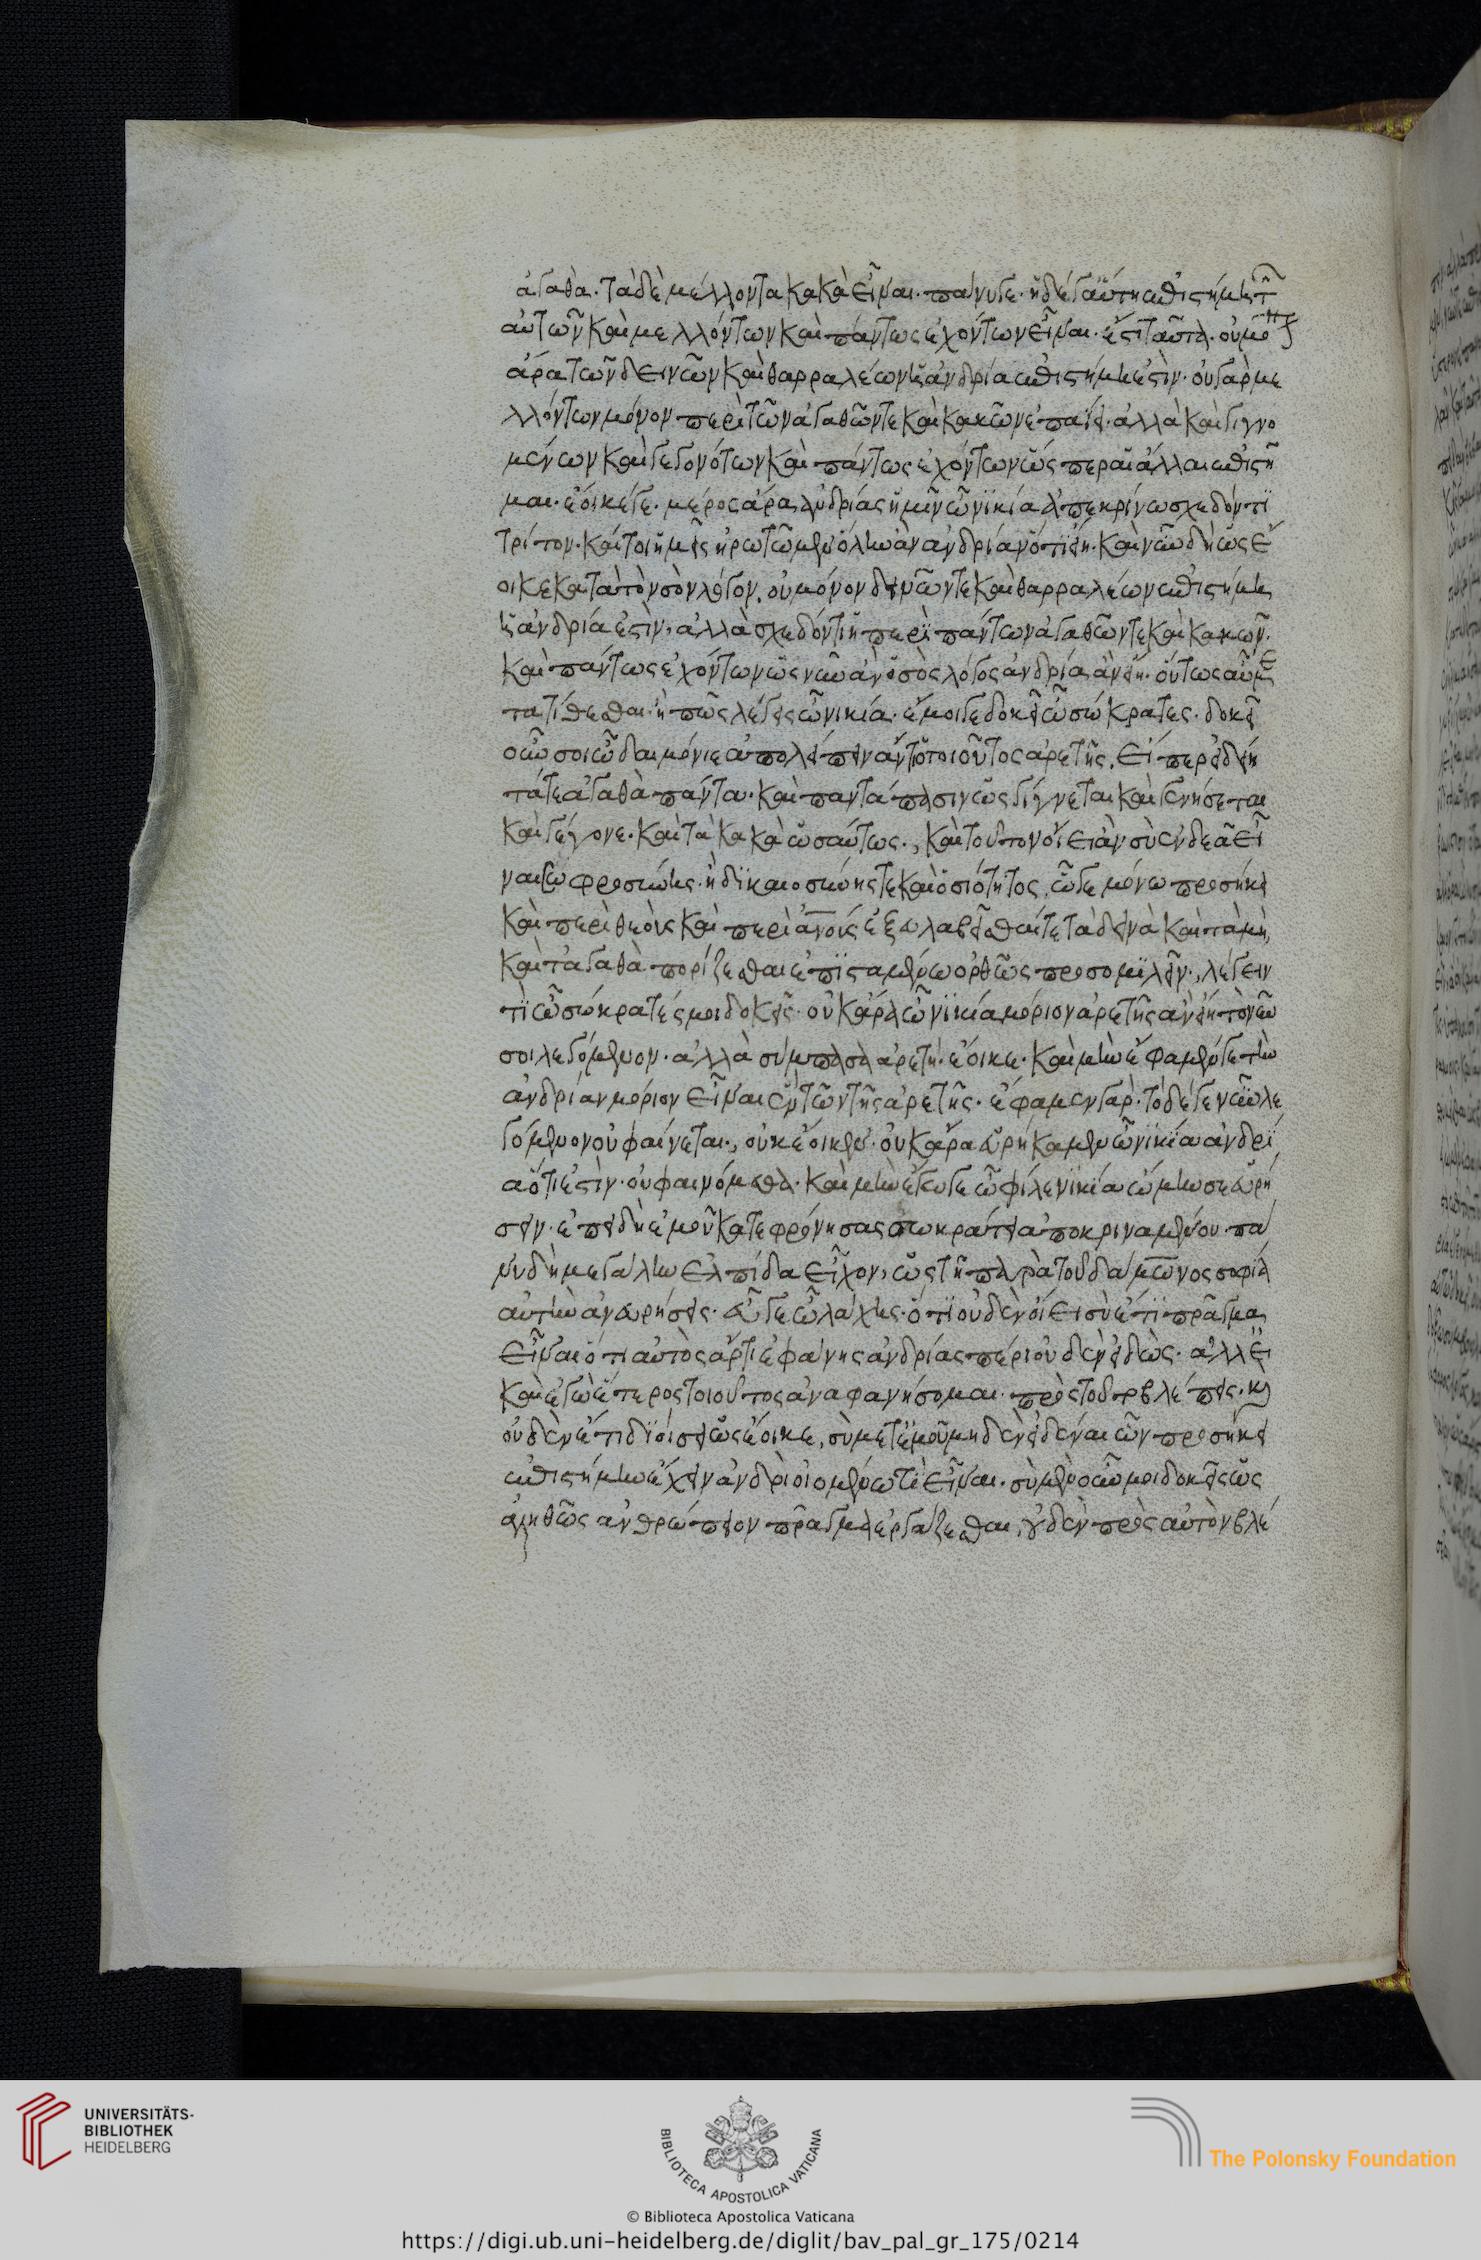 ἀγαθὰ. τὰ δὲ μέλλοντα κακὰ εἶναι. πάνυ γε. ἡ δέ γ' αὐτὴ ἐπιστήμη τῶν
αὐτῶν καὶ μελλόντων καὶ πάντως ἐχόντων εἶναι. ἔστι ταῦτα. οὐ μό
ἄρα τῶν δεινῶν καὶ θαρραλέων ἡ ἀνδρία ἐπιστήμη ἐστὶν. οὐ γὰρ με
λλόντων μόνον περὶ τῶν ἀγαθῶν τε καὶ κακῶν ἐπαΐει. ἀλλὰ καὶ γιγνο
μένων καὶ γεγονότων καὶ πάντως ἐχόντων ὥς περ αἱ ἄλλαι ἐπιστῆ
μαι. ἔοικέ γε. μέρος ἄρα ἀνδρίας ἡμῖν ὦ νικία ἀπεκρίνω σχεδόν τι
τρίτον. καίτοι ἡμεῖς ἠρωτῶμεν ὅλην ἀν ἀνδρίαν ὅτι εἴη. καὶ νῦν δὴ ὡς ἔ
οικε κατὰ τὸν σὸν λόγον, οὐ μόνον δεινῶν τε καὶ θαρραλέων ἐπιστήμη
ἡ ἀνδρία ἐστὶν, ἀλλὰ σχεδόν τι ἡ περὶ πάντων ἀγαθῶν τε καὶ κακῶν.
καὶ πάντως ἐχόντων ὡς νῦν ἀν ὁ σὸς λόγος ἀνδρία ἀν εἴη. οὕτως αὖ με
τατίθεσθαι ἢ πῶς λέγεις ὦ νικία. ἔμοιγε δοκεῖ ὦ σώκρατες. δοκεῖ
οὖν σοι ὦ δαιμόνιε ἀπολείπειν ἄν τι ὁ τοιοῦτος ἀρετῆς, εἴ περ εἰδείη
τά τε ἀγαθὰ πάντα. καὶ παντάπασιν ὡς γίγνεται καὶ γενήσεται
καὶ γέγονε. καὶ τὰ κακὰ ὡσαύτως., καὶ τοῦτον οἴει ἀν σὺ ἐνδεᾶ εἶ
ναι σωφροσύνης. ἢ δικαιοσύνης τε καὶ ὁσιότητος, ᾧ γε μόνω προσήκει
καὶ περὶ θεοὺς καὶ περὶ ἀνοις ἐξευλαβεῖσθαί τε τὰ δεινὰ καὶ τὰ μὴ,
καὶ τἀγαθὰ πορίζεσθαι ἐπισταμένω ὀρθῶς προσομιλεῖν., λέγειν
τὶ ὦ σώκρατές μοι δοκεῖς. οὐκ ἄρα ὦ νικία μόριον ἀρετῆς ἀν εἴη τὸ νῦν
σοι λεγόμενον. ἀλλὰ σύμπασα ἀρετή. ἔοικε. καὶ μὴν ἔφαμέν γε τὴν
ἀνδρίαν μόριον εἶναι ἓν τῶν τῆς ἀρετῆς. ἔφαμεν γὰρ. τὸ δέ γε νῦν λε
γόμενον οὐ φαίνεται., οὐκ ἔοικεν. οὐκ ἄρα εὑρήκαμεν ὦ νικία ἀνδρί
α ὅτι ἐστὶν. οὐ φαινόμεθα. καὶ μὴν ἔγωγε ὦ φίλε νικία ᾤμην σε εὑρή
σειν. ἐπειδὴ ἐμοῦ κατεφρόνησας σωκράτει ἀποκριναμένου. πά
νυ δὴ μεγάλην ἐλπίδα εἶχον, ὡς τῇ παρὰ τοῦ δάμωνος σοφία
αὐτὴν ἀνευρήσεις. εὖ γε ὦ λάχης. ὅτι οὐδὲν οἴει σὺ ἔτι πρᾶγμα
εἶναι ὅτι αὐτὸς ἄρτι ἐφάνης ἀνδρίας πέρι οὐδὲν εἰδὼς. ἀλλ' εἰ
καὶ ἐγὼ ἕτερος τοιοῦτος ἀναφανήσομαι. πρὸς τοῦτο βλέπεις. καὶ
οὐδὲν ἔτι διοίσει ὡς ἔοικε, σοὶ μετ' ἐμοῦ μηδὲν εἰδέναι ὧν προσήκει
ἐπιστήμην ἔχειν ἀνδρὶ οἰομένω τὶ εἶναι. σὺ μὲν οὖν μοι δοκεῖς ὡς
ἀληθῶς ἀνθρώπειον πρᾶγμα ἐργάζεσθαι, οὐδὲν πρὸς αὐτὸν βλέ
UNIVERSITÄTS-
BIBLIOTHEK
HEIDELBERG
BIBLIOTECA APOSTOLICA VATICANA
The Polonsky Foundation
© Biblioteca Apostolica Vaticana
https://digi.ub.uni-heidelberg.de/diglit/bav_pal_gr_175/0214